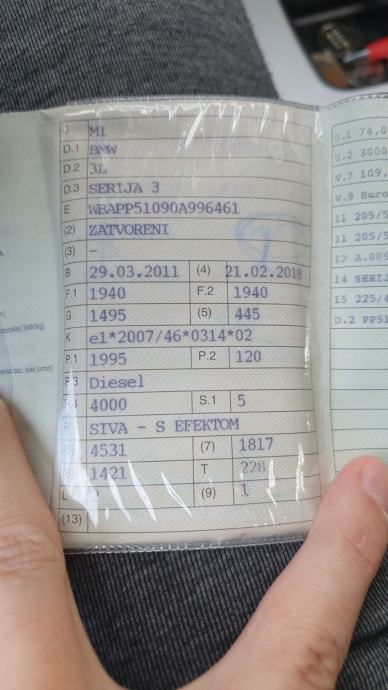 J M1
D.1 BMW
D.2 3L
D.3 SERIJA 3
E WBAPP51090A996461
(2) ZATVORENI
(3) -
B 29.03.2011 (4) 21.02.2018
F.1 1940 F.2 1940
G 1495 (5) 445
K e1*2007/46*0314*02
P.1 1995 P.2 120
P.3 Diesel
4000 S.1 5
R SIVA - S EFEKTOM
4531 (7) 1817
1421 T 228
L 2 (9) 1
(13)
U.1 74,0
U.2 3000
V.7 109,
V.9 Euro
11 205/5
11 205/5
12 A.009
14 SERIJ
15 225/4
D.2 PP51